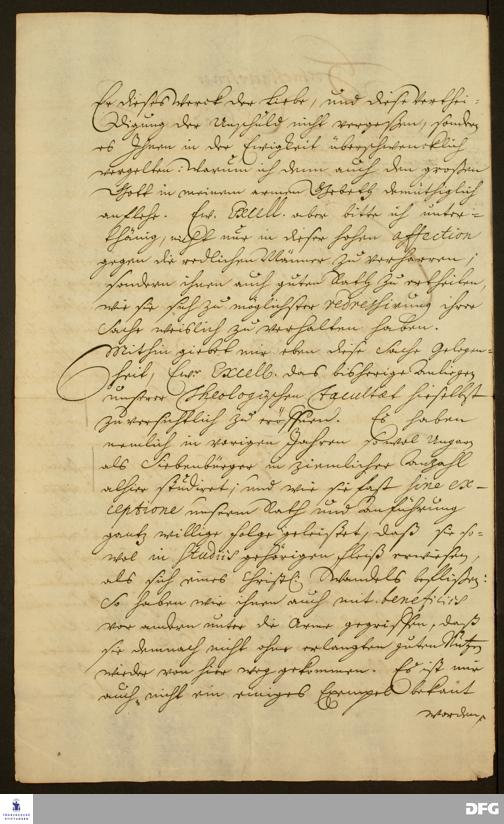 Er dieses Werck der Liebe, und diese Verthei-
digung der Unschuld nicht vergeßen, sondern
es Ihnen in der Ewigkeit überschwencklich
vergelten: warum ich denn auch den großen
Gott in meinem armen Gebeth demüthiglich
anflehe. Ew. Excell. aber bitte ich unter-
thänig, nicht nur in dieser hohen affection
gegen die redlichen Männer zu verharren,
sondern ihnen auch guten Rath zu ertheilen,
wie sie sich zu möglichster redressirung ihrer
Sache weislich zu verhalten haben.
Mithin giebet mir eben diese Sache Gelegen-
heit, Ew. Excell. das bisherige Anliegen
unserer Theologischen Facultaet hieselbst
zuversichtlich zu eröffnen. Es haben
nemlich in vorigen Jahren sowol Ungarn
als Siebenbürger in ziemlicher Anzahl
alhier studiret; und wie sie fast sine ex-
ceptione unserm Rath und Anführung
gantz willige Folge geleistet, daß sie so-
wol in Studiis gehörigen Fleiß erwiesen,
als sich eines Christl. Wandels beflißen:
So haben wir ihnen auch mit beneficiis
vor andern unter die Arme gegriffen, daß
sie demnach nicht ohne erlangten guten Nutzen
wieder von hier weg gekommen. Es ist mir
auch nicht ein einiges Exempel bekant
worden,
FRANCKESCHE
STIFTUNGEN
DFG